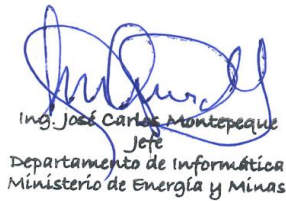 Ing. José Carlos Montepeque
Jefe
Departamento de Informática
Ministerio de Energía y Minas